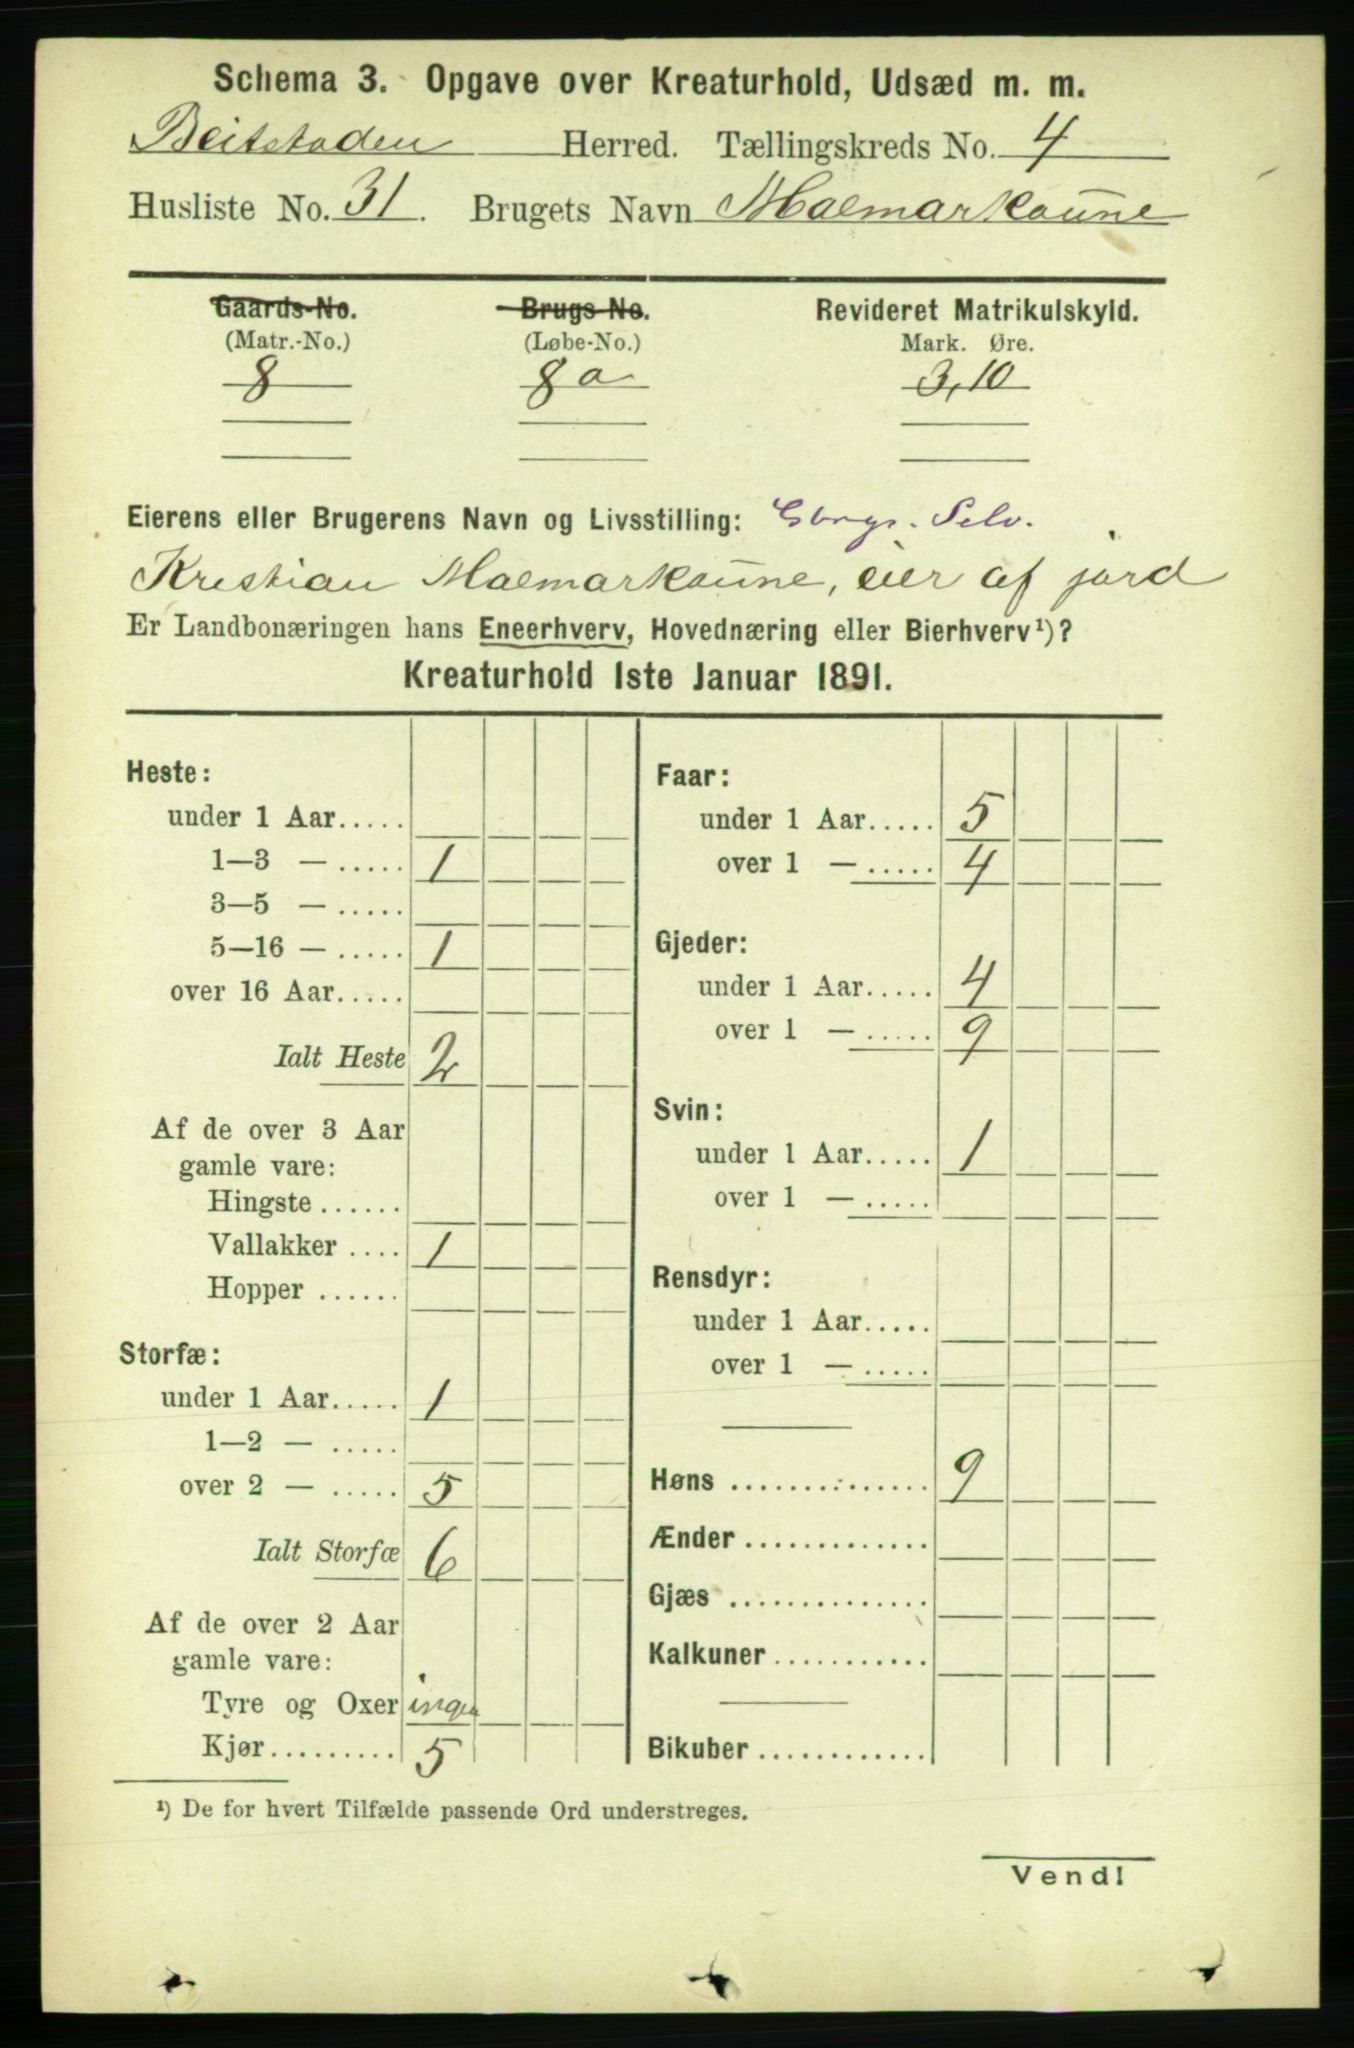 Schema 3. Opgave over Kreaturhold, Udsæd m. m.
Beitstaden Herred. Tællingskreds No. 4
Husliste No. 31. Brugets Navn Malmarkaune
Gaards-No. Brugs-No. Revideret Matrikulskyld.
(Matr.-No.) (Løbe-No.) Mark. Øre.
8 8a 3,10
Eierens eller Brugerens Navn og Livsstilling: Gbrgr. Selv.
Kristian Malmarkaune, eier af jord
Er Landbonæringen hans Eneerhverv, Hovednæring eller Bierhverv¹)?
Kreaturhold 1ste Januar 1891.
Heste:
under 1 Aar.....
1—3 — ..... 1
3—5 — .....
5—16 — ..... 1
over 16 Aar.....
Ialt Heste 2
Af de over 3 Aar
gamle vare:
Hingste ......
Vallakker .... 1
Hopper ......
Storfæ:
under 1 Aar..... 1
1—2 — .....
over 2 — ..... 5
Ialt Storfæ 6
Af de over 2 Aar
gamle vare:
Tyre og Oxer ingen
Kjør......... 5
Faar:
under 1 Aar..... 5
over 1 — ..... 4
Gjeder:
under 1 Aar..... 4
over 1 — ..... 9
Svin:
under 1 Aar..... 1
over 1 — .....
Rensdyr:
under 1 Aar.....
over 1 — .....
Høns .............. 9
Ænder .............
Gjæs ..............
Kalkuner ...........
Bikuber .............
¹) De for hvert Tilfælde passende Ord understreges.
Vend!